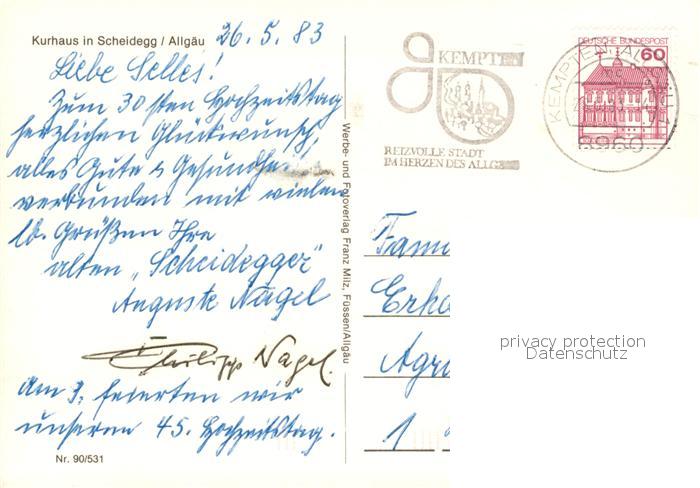 Kurhaus in Scheidegg / Allgäu
26.5.83
Liebe Selles!
Zum 30sten Hochzeitstag
herzlichen Glückwunsch,
alles Gute & Gesundheit
verbunden mit vielen
lb. Grüßen Ihre
alten „Scheidegger"
Auguste Nagel
Philipp Nagel.
Am 9. feierten wir
unseren 45. Hochzeitstag.
Nr. 90/531
Werbe- und Fotoverlag Franz Milz, Füssen/Allgäu
KEMPTEN
REIZVOLLE STADT
IM HERZEN DES ALLG
DEUTSCHE BUNDESPOST
60
KEMPTEN, ALLGÄU
8960
Fam
Erko
Agri
1
privacy protection
Datenschutz